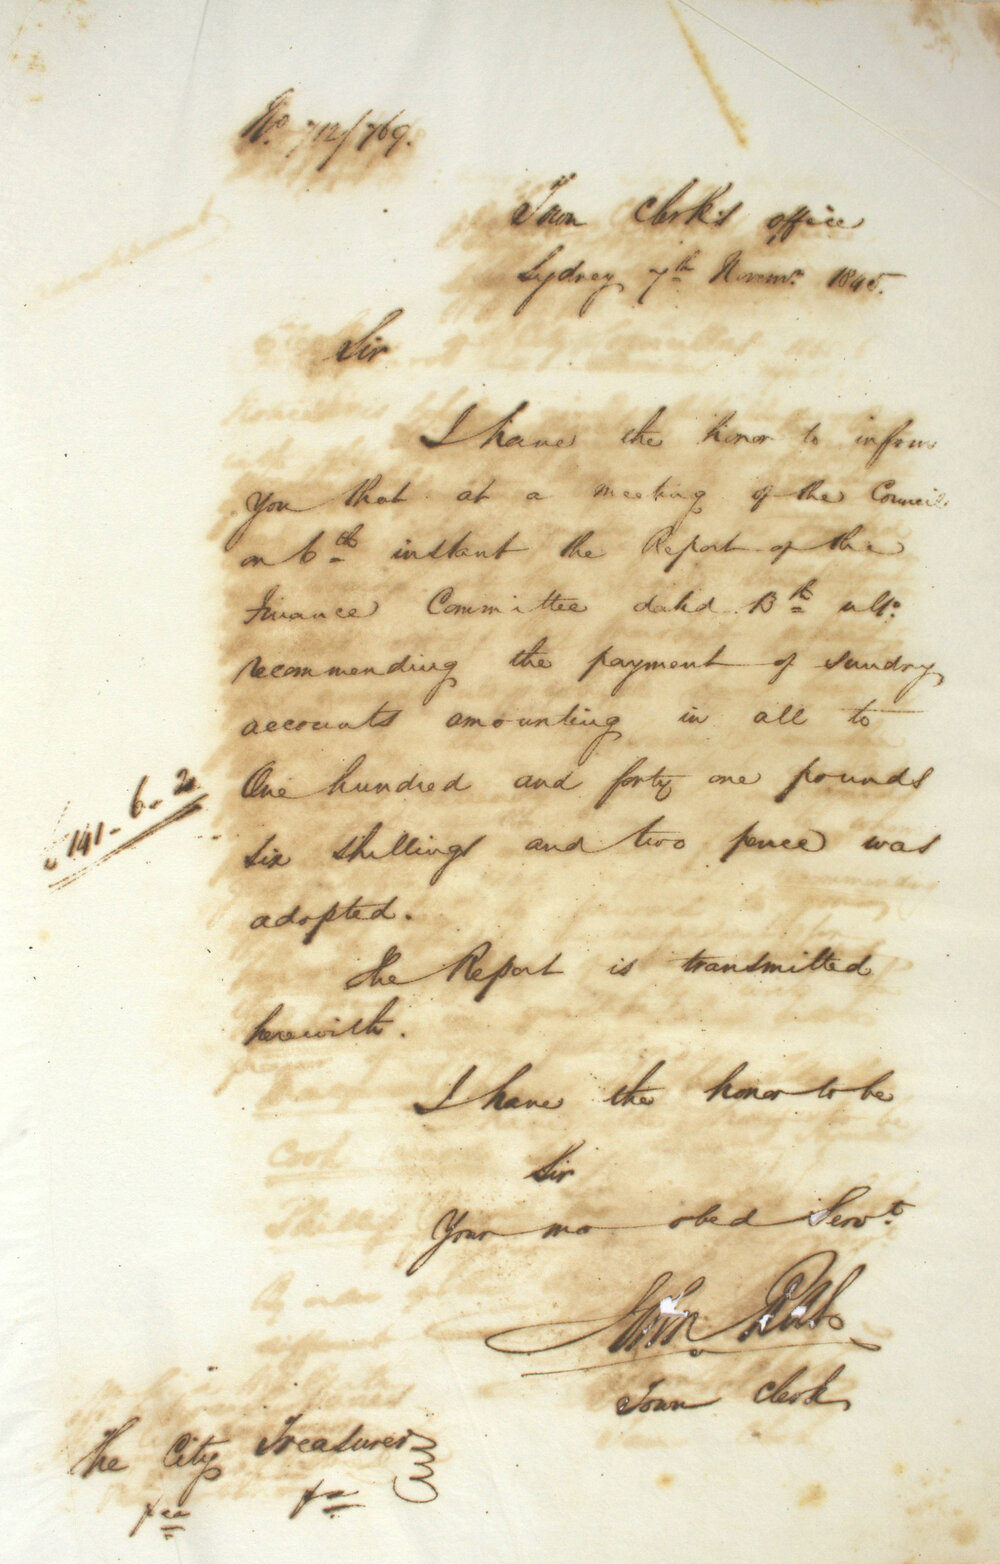 No. 712/769.
Town Clerk's office
Sydney 7th Novemr. 1845.
Sir
I have the honor to inform
You that at a meeting of the Council
on 6th instant the Report of the
Finance Committee dated 13th ulto.
recommending the payment of sundry
accounts amounting in all to
One hundred and forty one pounds
£141-6-2
six shillings and two pence was
adopted.
The Report is transmitted
herewith.
I have the honor to be
Sir
Your mo obed Servt.
John Rae
Town Clerk
The City Treasurer
&c &c